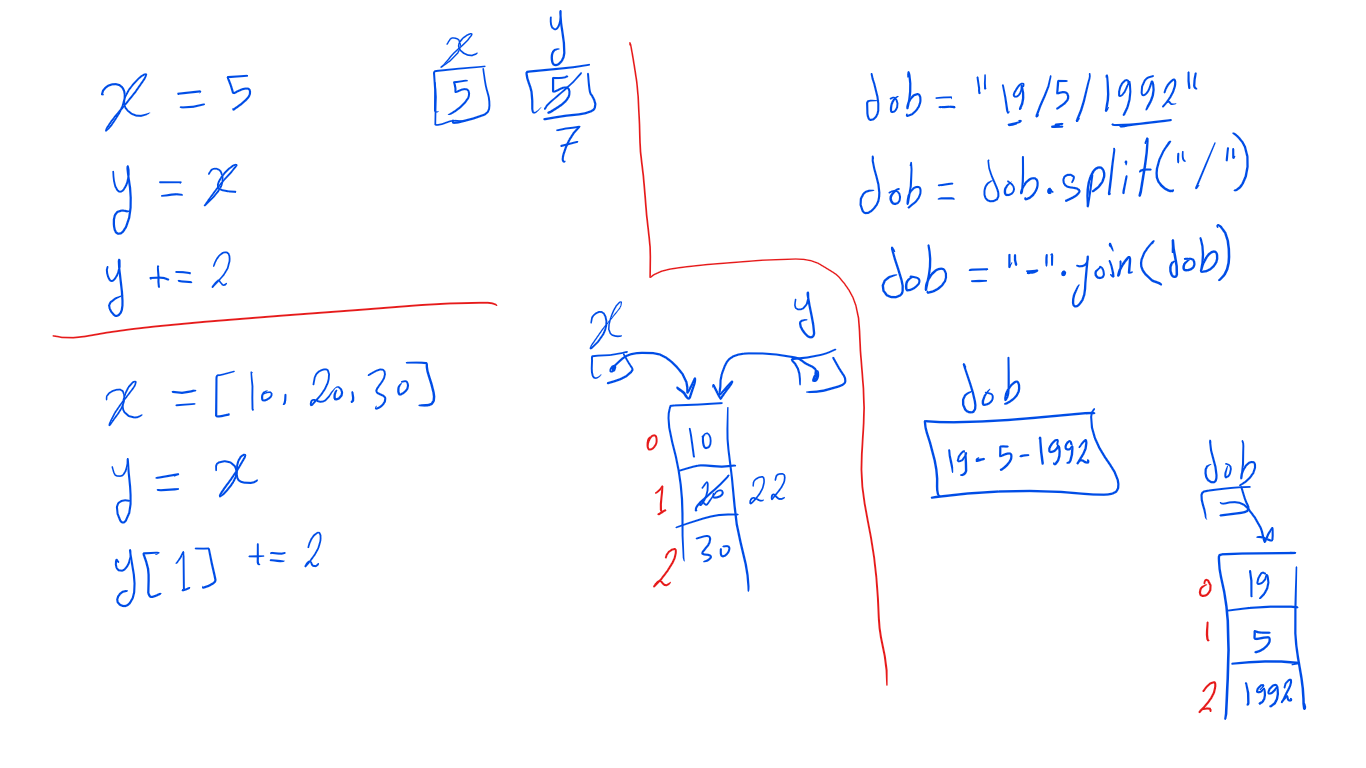 x = 5
y = x
y += 2
x y
5 5
7
x = [10, 20, 30]
y = x
y[1] += 2
x y
0 10
1 20 22
2 30
dob = "19/5/1992"
dob = dob.split("/")
dob = "-".join(dob)
dob
19-5-1992
dob
0 19
1 5
2 1992